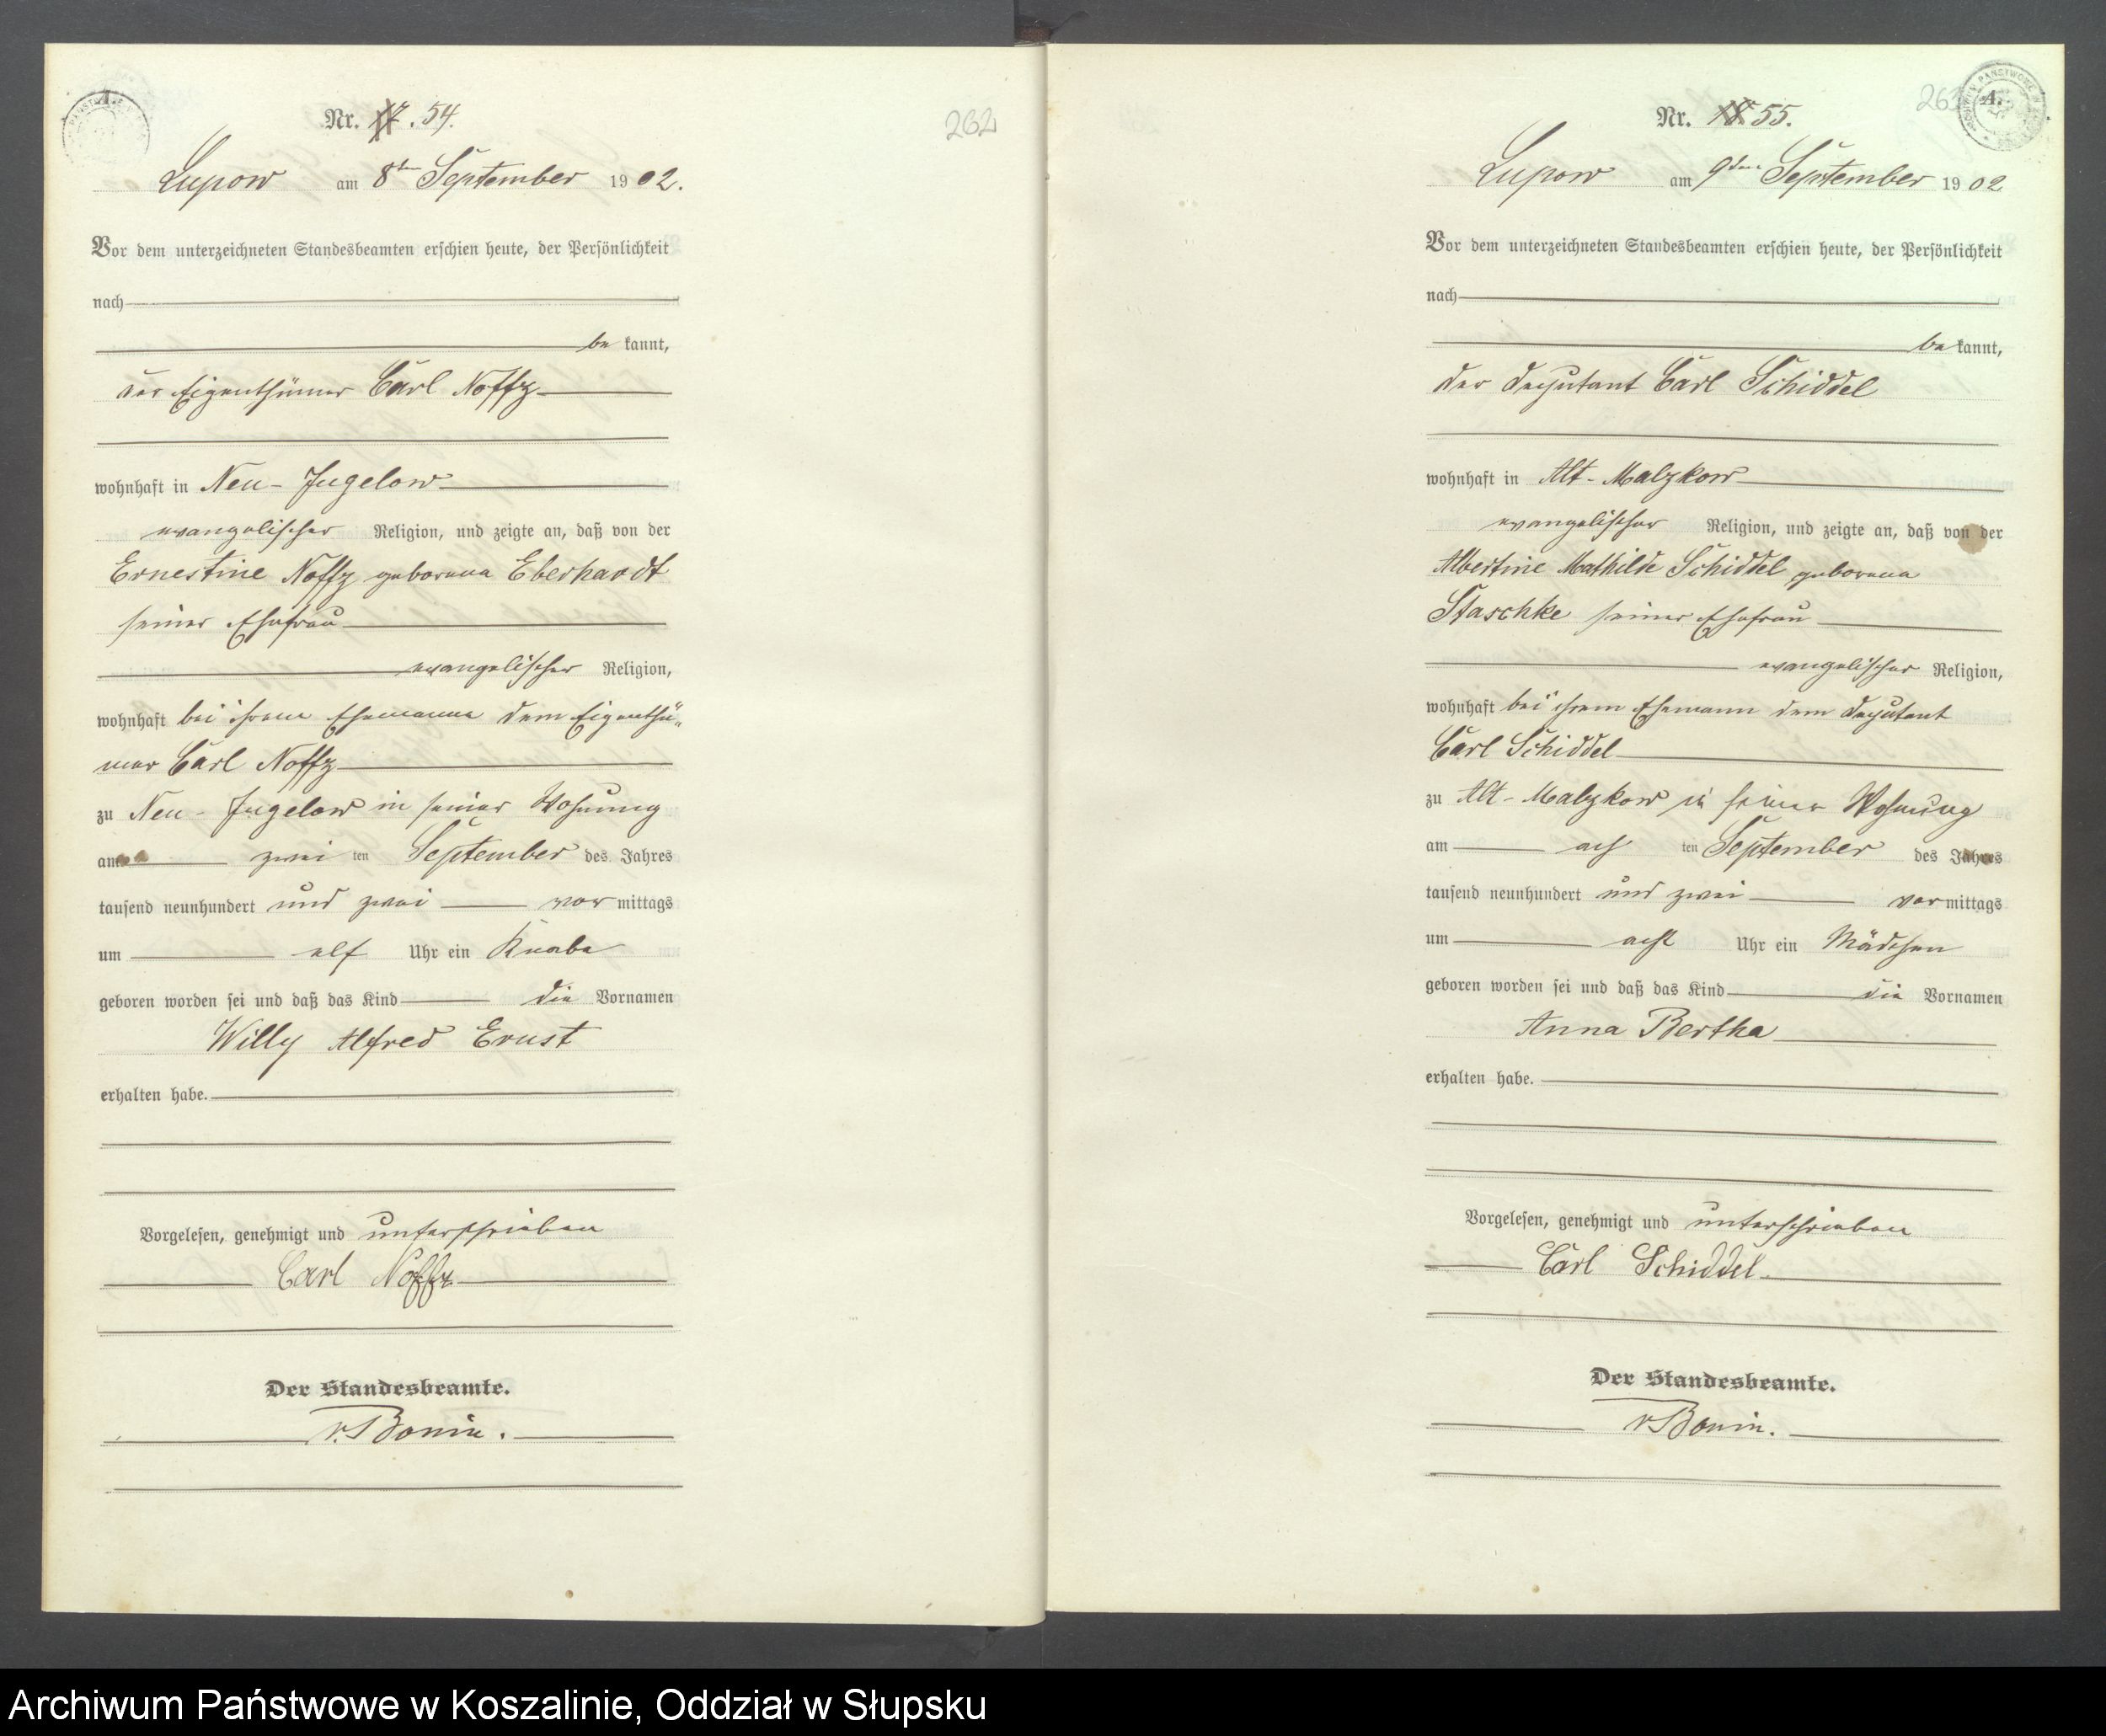 A.
262
Nr. 17. 54.
Lupow am 8ten September 1902.
Vor dem unterzeichneten Standesbeamten erschien heute, der Persönlichkeit
nach
be kannt,
der Eigenthümer Carl Noffz
wohnhaft in Neu-Jugelow
evangelischer Religion, und zeigte an, daß von der
Ernestine Noffz geborene Eberhardt
seiner Ehefrau
evangelischer Religion,
wohnhaft bei ihrem Ehemanne dem Eigenthü-
mer Carl Noffz
zu Neu-Jugelow in seiner Wohnung
am zwei ten September des Jahres
tausend neunhundert und zwei vor mittags
um elf Uhr ein Knabe
geboren worden sei und daß das Kind die Vornamen
Willy Alfred Ernst
erhalten habe.
Vorgelesen, genehmigt und unterschrieben
Carl Noffz
Der Standesbeamte.
v. Bonin.
263
A.
Nr. 18. 55.
Lupow am 9ten September 1902
Vor dem unterzeichneten Standesbeamten erschien heute, der Persönlichkeit
nach
be kannt,
der Deputant Carl Schiddel
wohnhaft in Alt-Malzkow
evangelischer Religion, und zeigte an, daß von der
Albertine Mathilde Schiddel geborene
Staschke seiner Ehefrau
evangelischer Religion,
wohnhaft bei ihrem Ehemann dem Deputant
Carl Schiddel
zu Alt-Malzkow in seiner Wohnung
am ach ten September des Jahres
tausend neunhundert und zwei vor mittags
um acht Uhr ein Mädchen
geboren worden sei und daß das Kind die Vornamen
Anna Bertha
erhalten habe.
Vorgelesen, genehmigt und unterschrieben
Carl Schiddel
Der Standesbeamte.
v Bonin.
Archiwum Państwowe w Koszalinie, Oddział w Słupsku